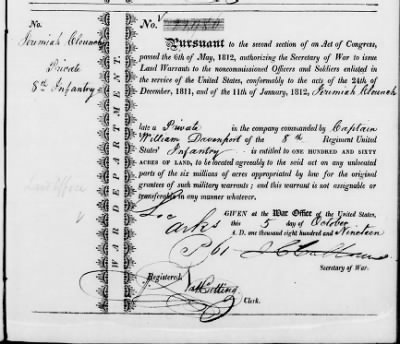 No.
Jeremiah Clounch
Private
8th Infantry
Land Office
WAR DEPARTMENT.
No.
Pursuant to the second section of an Act of Congress,
passed the 6th of May, 1812, authorizing the Secretary of War to issue
Land Warrants to the noncommissioned Officers and Soldiers enlisted in
the service of the United States, conformably to the acts of the 24th of
December, 1811, and of the 11th of January, 1812, Jeremiah Clounch
late a Private in the company commanded by Captain
William Davenport of the 8th Regiment United
States' Infantry is entitled to ONE HUNDRED AND SIXTY
ACRES OF LAND, to be located agreeably to the said act on any unlocated
parts of the six millions of acres appropriated by law for the original
grantees of such military warrants; and this warrant is not assignable or
transferable in any manner whatever.
GIVEN at the War Office of the United States,
this 5 day of October
A. D. one thousand eight hundred and Nineteen
Loc
Arks
J C Calhoun
Secretary of War.
Registered
Nat Cutting
Clerk.